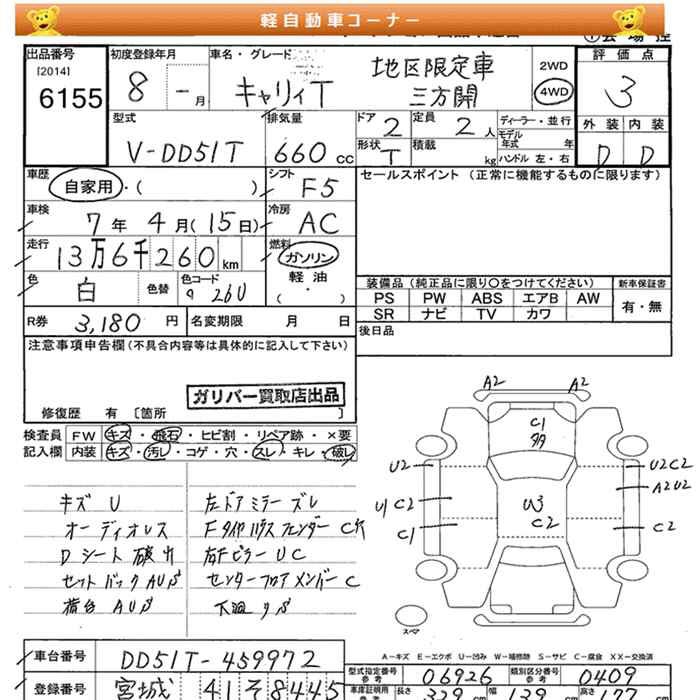 軽自動車コーナー
出品番号
[2014]
6155
初度登録年月
8 - 月
車名・グレード
キャリィT
地区限定車
三方開
2WD
4WD
評価点
3
型式
V-DD51T
排気量
660 cc
ドア 2
定員 2 人
形状 T
積載 kg
ディーラー・並行
モデル
年式 年
ハンドル 左・右
外装 内装
D D
車歴
自家用・( )
シフト
F5
セールスポイント(正常に機能するものに限ります)
車検
7年 4月(15日)
冷房
AC
走行
13万6千260km
燃料
ガソリン
軽・油
( )
色
白
色替
色コード
26U
装備品(純正品に限り○をつけてください)
新車保証書
PS PW ABS エアB AW
SR ナビ TV カワ
有・無
R券 3,180 円
名変期限 月 日
後日品
注意事項申告欄(不具合内容等は具体的に記入して下さい)
ガリバー買取店出品
修復歴 有 [箇所 ]
検査員
記入欄
FW キズ・飛石・ヒビ割・リペア跡・×要
内装 キズ・汚レ・コゲ・穴・スレ・キレ・破レ
キズ U
オーディオレス
Dシート 破レ
セットバック AUS
荷台 AUS
左ドアミラー ズレ
センターフロアメンバー C
下廻り S
A2 A2
C1
U2
U2C2
A2U2
U1 C2
C1
U3
C2
C2
スペア
A-キズ E-エクボ U-凹み W-補修跡 S-サビ C-腐食 XX-交換済
車台番号
DD51T-459972
型式指定番号
参考
06926
類別区分番号
参考
0409
登録番号
宮城 41 そ 8445
車庫証明用
参考
長さ 329 cm
幅 139 cm
高さ